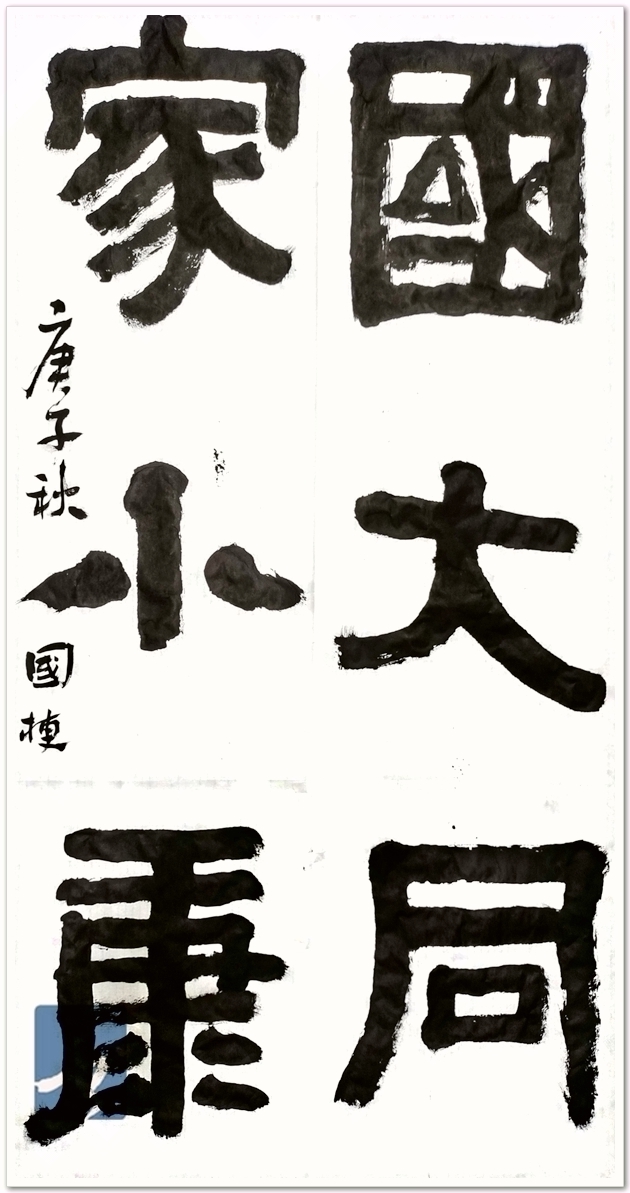 國大同
家小康
庚子秋
國棟